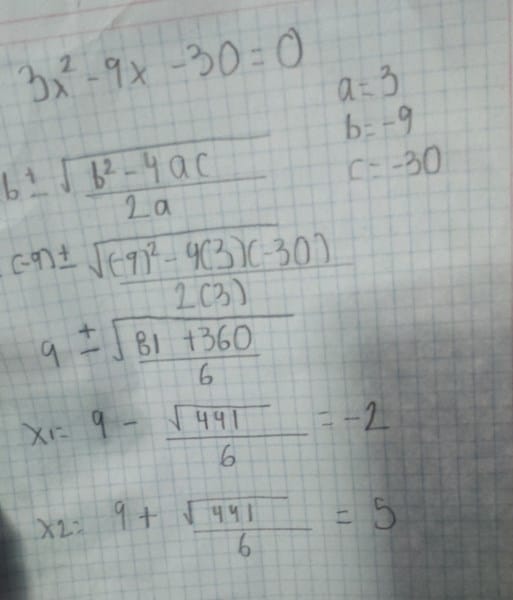 3x² - 9x - 30 = 0
a = 3
b = -9
c = -30
b ± √b² - 4ac
2a
(-9) ± √(-9)² - 4(3)(-30)
2(3)
9 ± √81 + 360
6
x1 = 9 - √441 = -2
6
x2 = 9 + √441 = 5
6